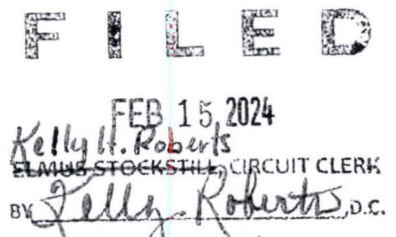 FILED
FEB 15, 2024
Kelly H. Roberts
ELMUS STOCKSTILL, CIRCUIT CLERK
BY Kelly Roberts, D.C.